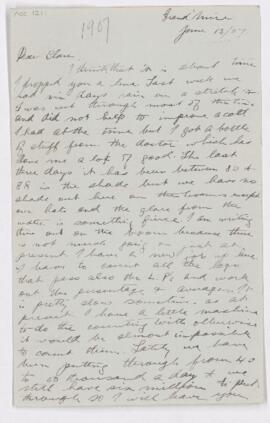 ACC 121
1907
Grand'Mère
June 13/07
Dear Clare
I think that it is about time
I dropped you a line. Last week we
had six days rain on a stretch &
I was out through most of the time
and did not help to improve a cold
I had at the time but I got a bottle
of stuff from the doctor which has
done me a lot of good. The last
three days it has been between 80 &
88 in the shade but we have no
shade out here on the booms except
our hats and the glare from the
water is something fierce. I am writing
this out on the boom because there
is not much going on just at
present. I have a new job up here
I have to count all the logs
that pass also the L.P.s and work
out the percentage & averages. It
is pretty slow sometimes. as at
present I have a little machine
to do the counting with otherwise
it would be almost impossible
to count them. Lately we have
been putting through from 40
to 60 thousand a day & we
still have six million to put
through so I will have you